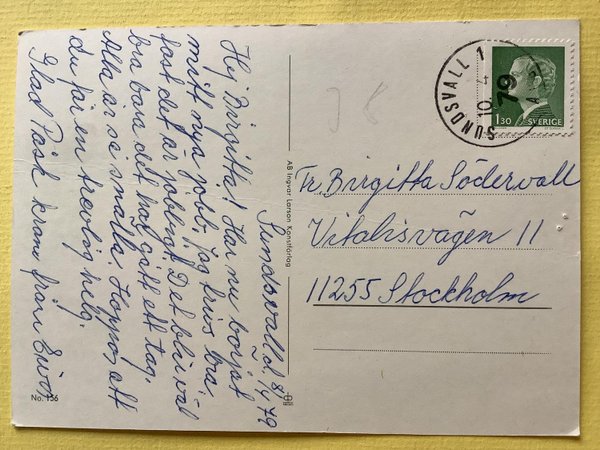 Sundsvall d. 8/4 79
Hej Birgitta! Har nu börjat
mitt nya jobb. Jag trivs bra
fast det är jobbigt. Det blir väl
bra bara det har gått ett tag.
Alla är så snälla. Hoppas att
du får en trevlig helg.
Glad Påsk kram från
No. 156
AB Ingvar Larson Konstförlag
J 8
SUNDSVALL 1
79
10
4
SUNDSVALL
1.30 SVERIGE
Fr. Birgitta Södervall
Vitalisvägen 11
11255 Stockholm